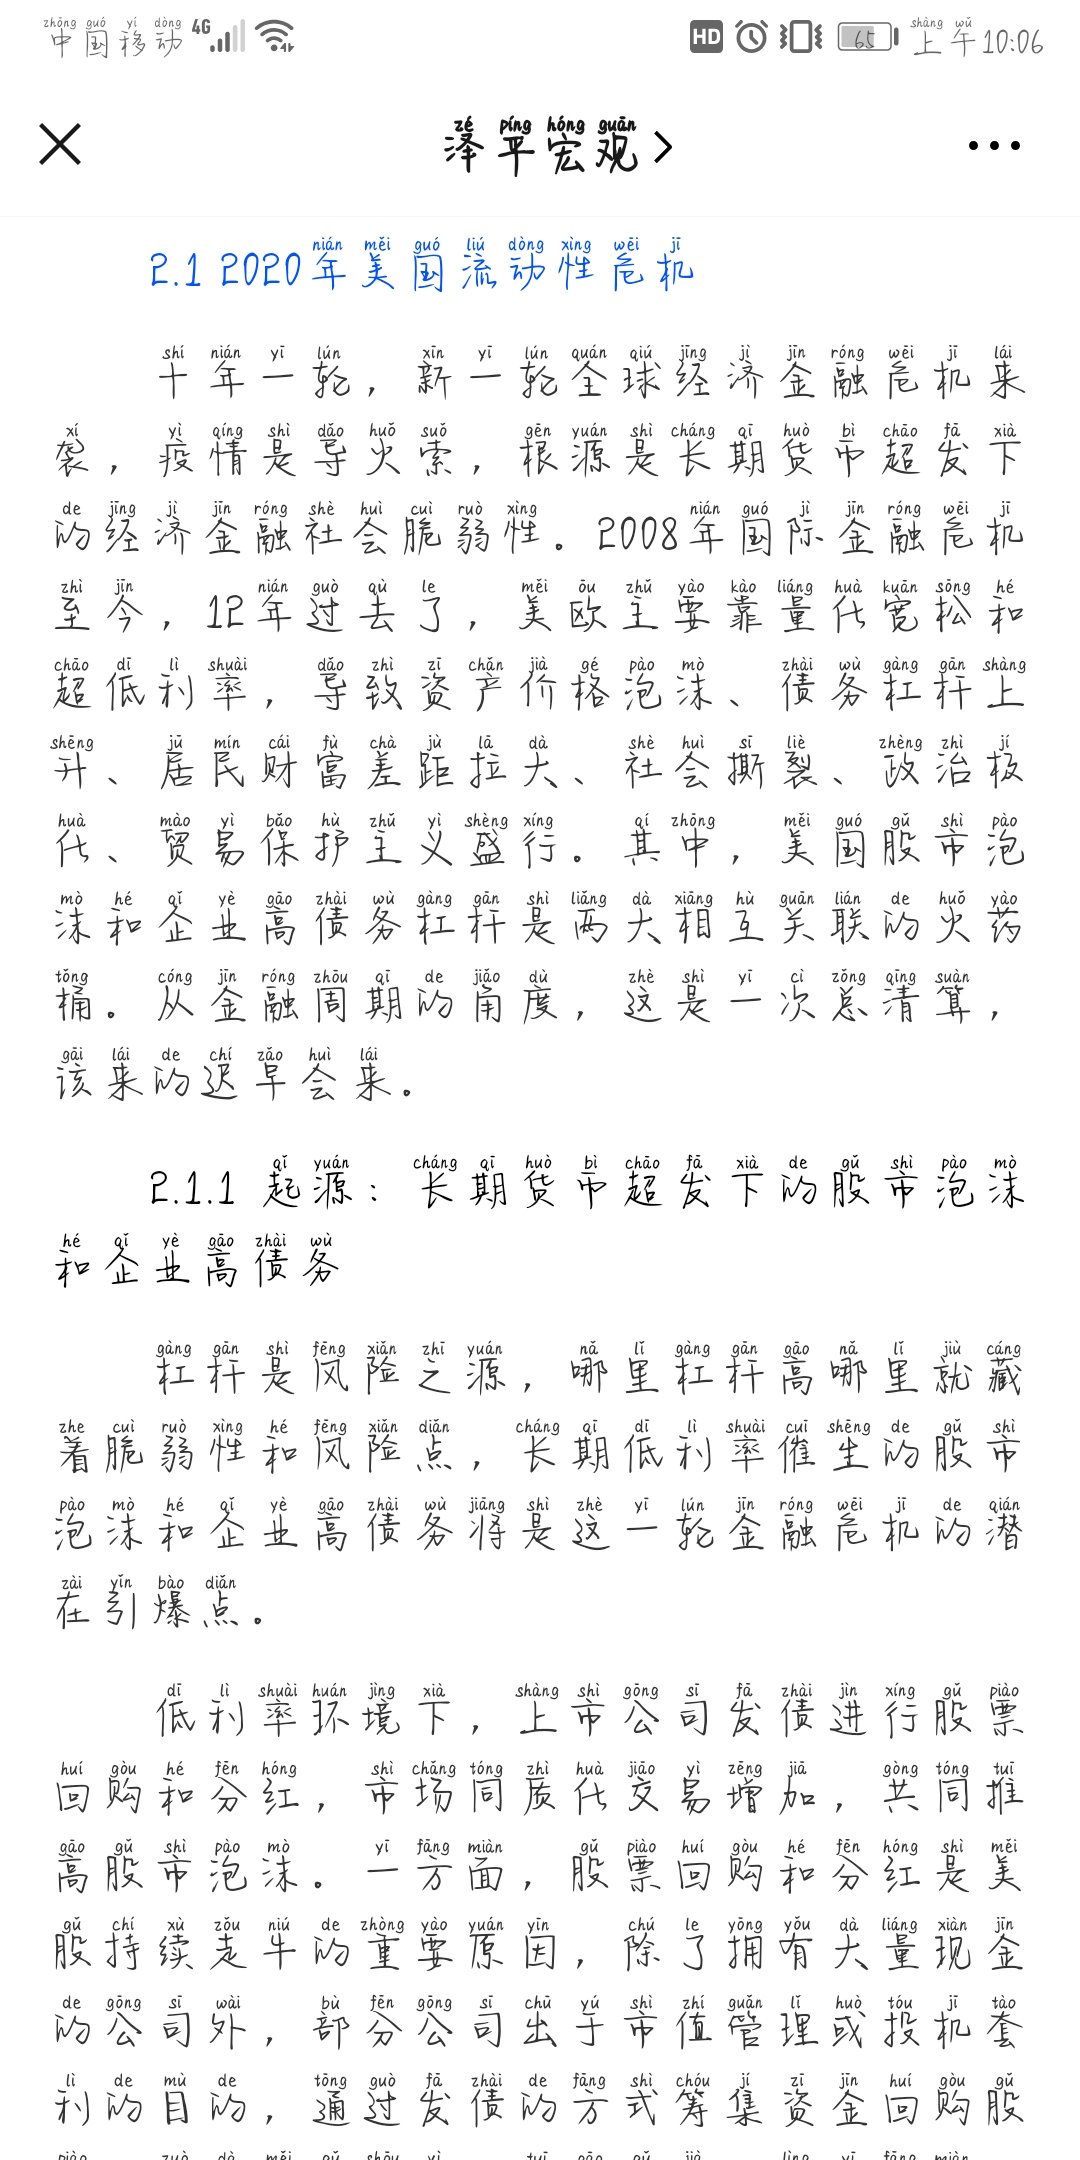 中国移动 4G HD 65 上午10:06
泽平宏观
2.1 2020年美国流动性危机
十年一轮，新一轮全球经济金融危机来
袭，疫情是导火索，根源是长期货币超发下
的经济金融社会脆弱性。2008年国际金融危机
至今，12年过去了，美欧主要靠量化宽松和
超低利率，导致资产价格泡沫、债务杠杆上
升、居民财富差距拉大、社会撕裂、政治极
化、贸易保护主义盛行。其中，美国股市泡
沫和企业高债务杠杆是两大相互关联的火药
桶。从金融周期的角度，这是一次总清算，
该来的迟早会来。
2.1.1 起源：长期货币超发下的股市泡沫
和企业高债务
杠杆是风险之源，哪里杠杆高哪里就藏
着脆弱性和风险点，长期低利率催生的股市
泡沫和企业高债务将是这一轮金融危机的潜
在引爆点。
低利率环境下，上市公司发债进行股票
回购和分红，市场同质化交易增加，共同推
高股市泡沫。一方面，股票回购和分红是美
股持续走牛的重要原因，除了拥有大量现金
的公司外，部分公司出于市值管理或投机套
利的目的，通过发债的方式筹集资金回购股